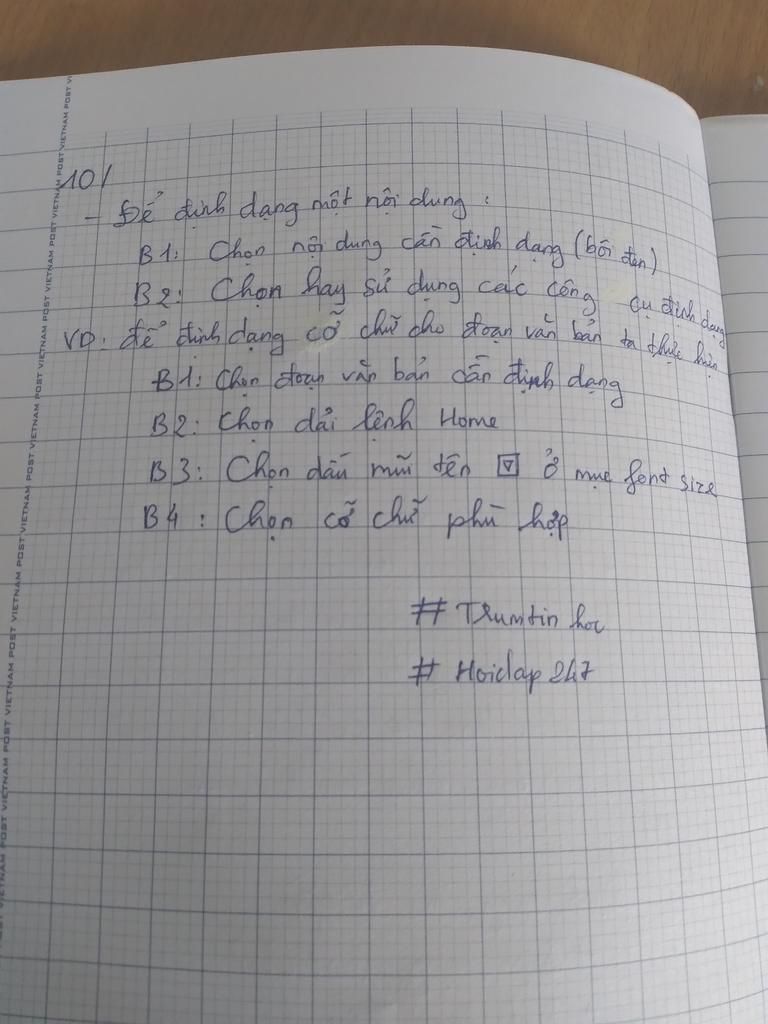 10/
- Để định dạng một nội dung :
B1: Chọn nội dung cần định dạng (bôi đen)
B2: Chọn hay sử dụng các công cụ định dạng
VD: để định dạng cỡ chữ cho đoạn văn bản ta thực hiện
B1: Chọn đoạn văn bản cần định dạng
B2: Chọn dải lệnh Home
B3: Chọn dấu mũi tên ▽ ở mục font size
B4: Chọn cỡ chữ phù hợp
# Trumtin hoc
# Hoidap 247
VIETNAM POST VIETNAM POST VIETNAM POST VIETNAM POST VIETNAM POST VIETNAM POST